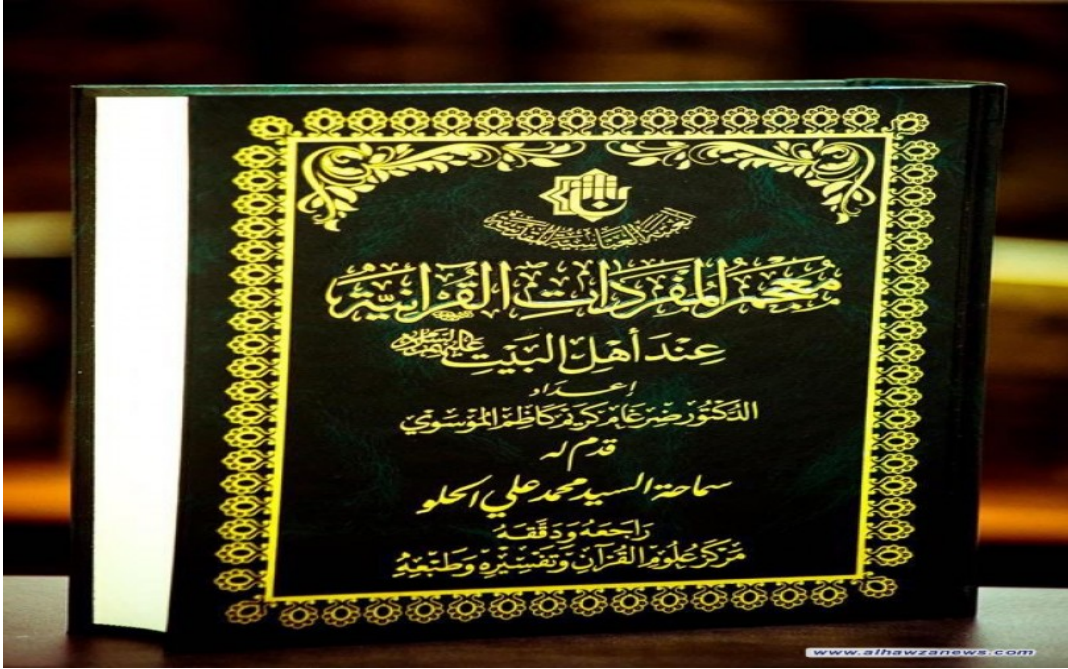 العتبة العباسية المقدسة
مُعْجَمُ المُفْرَدَاتِ القُرْآنِيَّةِ
عِنْدَ أَهْلِ البَيْتِ عليهم السلام
إعداد
الدكتور ضرغام كريم كاظم الموسوي
قدم له
سماحة السيد محمد علي الحلو
رَاجَعَهُ وَدَقَّقَهُ
مَرْكَزُ عُلُومِ القُرْآنِ وَتَفْسِيْرِهِ وَطَبْعِهِ
www.alhawzanews.com